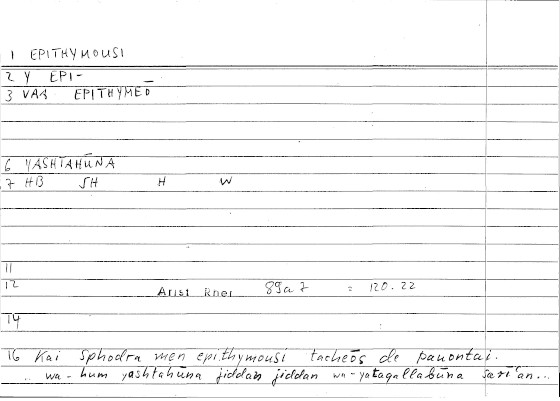 1 EPITHYMOUSI
2 Y EPI-
3 VAR EPITHYMEŌ
6 YASHTAHŪNA
7 HB SH H W
11
12 Arist Rhet 89a7 = 120.22
14
16 Kai sphodra men epithymousi tacheōs de pauontai.
.. wa-hum yashtahūna jiddan jiddan wa-yataqallabūna sarī'an...